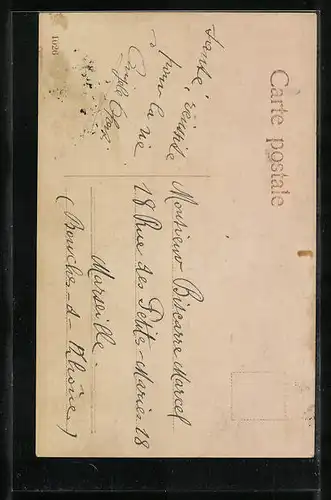 Carte postale
Santé, réussite
pour la vie
Monsieur Biscarre Marcel
18 Rue des Petites-Maries 18
Marseille.
(Bouches-d-Rhône)
1026